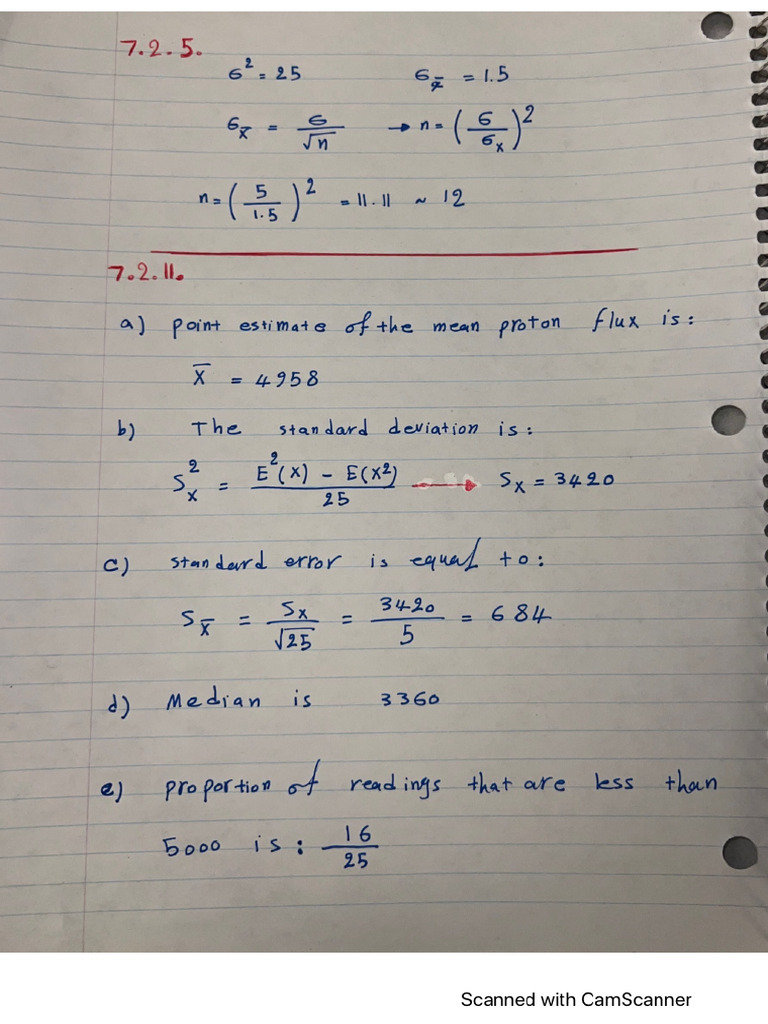 7.2.5.
6² = 25 6x̄ = 1.5
6x̄ = 6/√n → n = (6/6x)²
n = (5/1.5)² = 11.11 ~ 12
7.2.11.
a) point estimate of the mean proton flux is:
X̄ = 4958
b) The standard deviation is:
Sx² = E²(X) - E(X²)/25 → Sx = 3420
c) standard error is equal to:
Sx̄ = Sx/√25 = 3420/5 = 684
d) Median is 3360
e) proportion of readings that are less than
5000 is: 16/25
Scanned with CamScanner